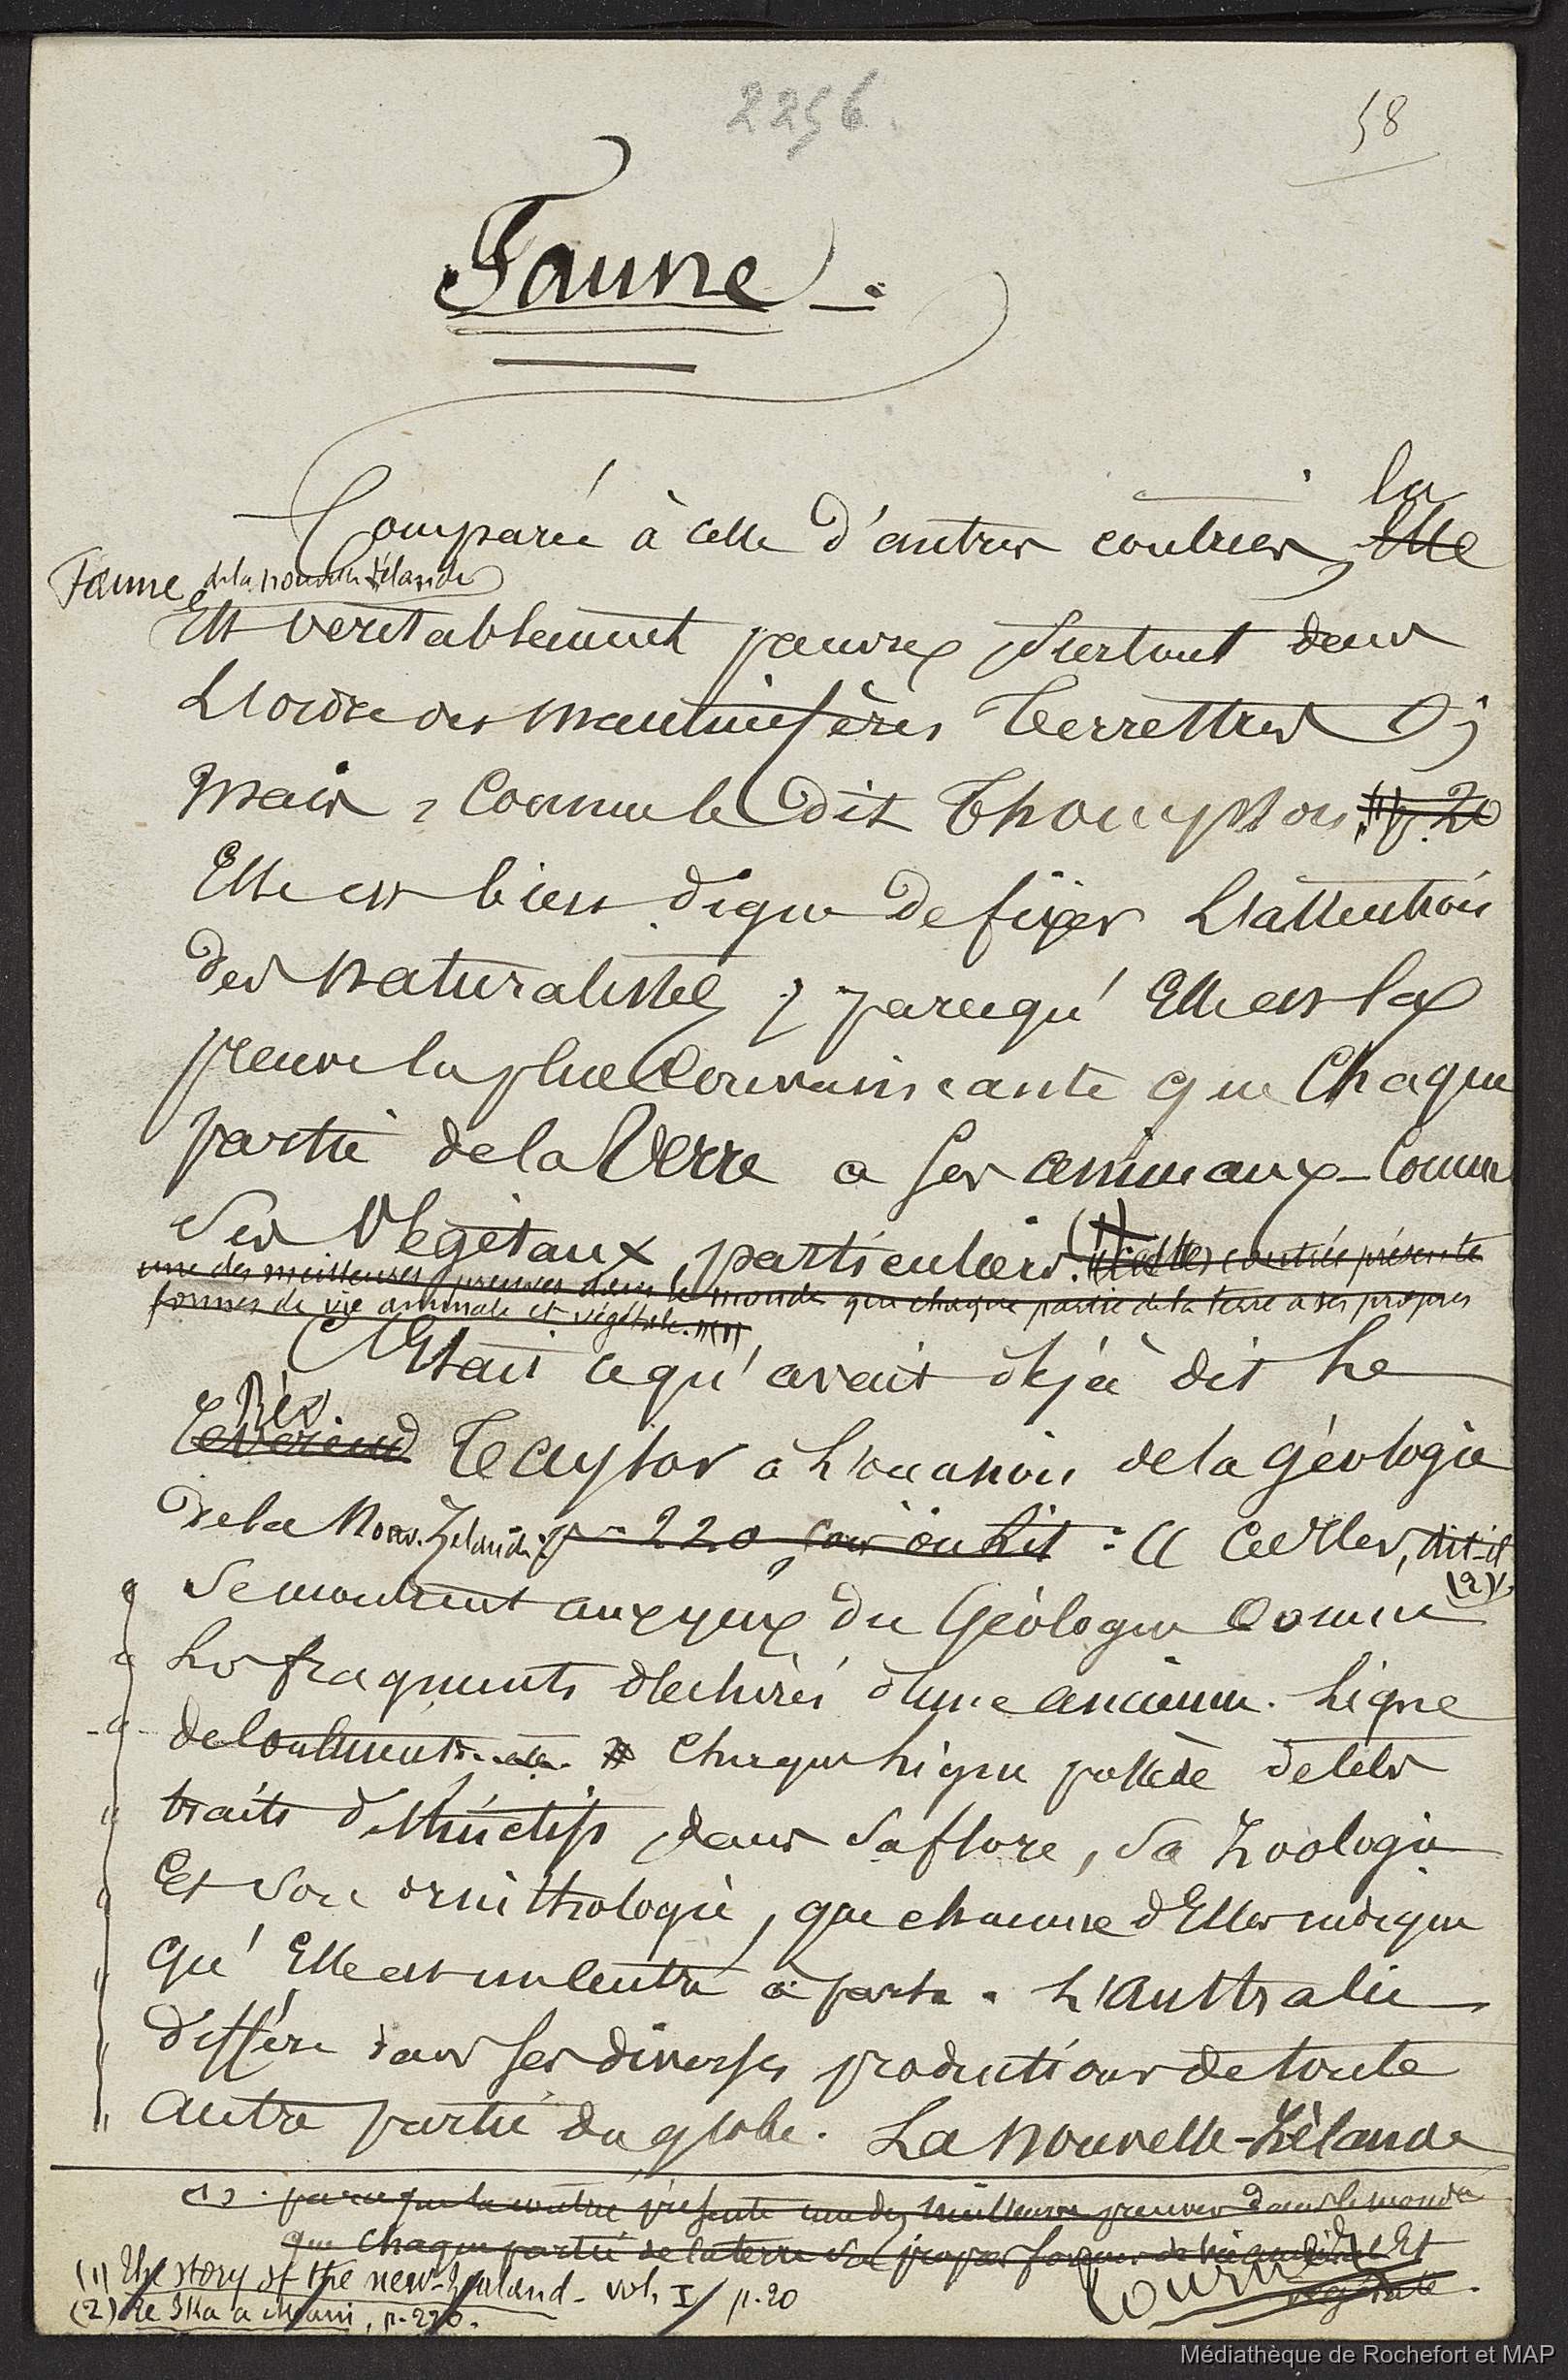 2256.
58
Faune.
Comparée à celle d'autres contrées, la Elle
Faune de la nouvelle Zélande
Est véritablement pauvre, surtout dans
L'ordre des mammifères terrestres ;
mais, comme le dit Thompson, p. 20
Elle est bien digne de fixer L'attention
des naturalistes, parcequ'Elle est la
preuve la plus convaincante que Chaque
partie de la Terre a ses animaux comme
ses Végétaux particuliers. (1) contrée présente
une des meilleures preuves dans le monde que chaque partie de la terre a ses propres
formes de vie animale et végétale." (1)
C'Etait ce qu'avait déjà dit Le
Rév. reverend Taylor à L'occasion de la géologie
de la Nouv. Zélande p. 220, où on lit : " Celles, dit-il (2)
" se montrent aux yeux du Géologue comme
" Les fragments déchirés d'une ancienne Ligne
" de Continents. Chaque Ligne possède de tels
" traits distinctifs dans sa flore, sa Zoologie
" Et son ornithologie, que chacune d'Elles indique
" qu'Elle est un centre à part. L'Australie
" diffère dans ses diverses productions de toute
" autre partie du globe. La Nouvelle-Zélande
(1). parce que la contrée présente une des meilleures preuves dans le monde
que chaque partie de la terre a ses propres formes de vie animale Et
végétale.
(1) The story of the new-Zealand - vol. I, p. 20
(2) Te Ika a Maui, p. 220.
tournez
Médiathèque de Rochefort et MAP